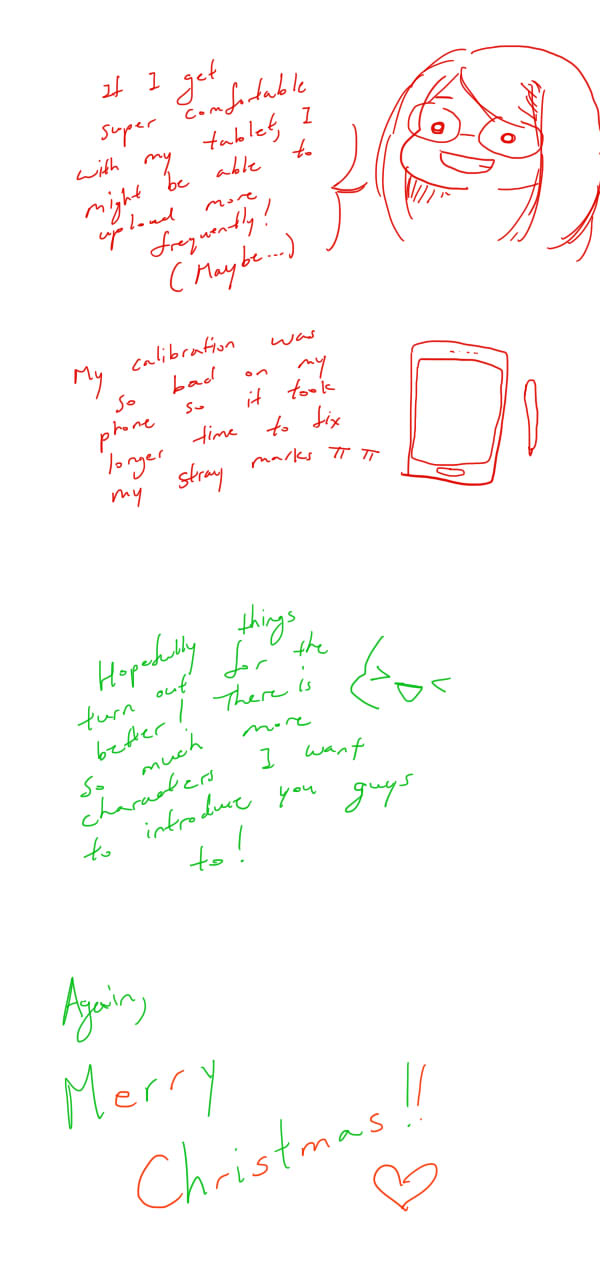 If I get
super comfortable
with my tablet, I
might be able to
upload more
frequently!
(Maybe...)
My calibration was
so bad on my
phone so it took
longer time to fix
my stray marks ㅠㅠ
Hopefully things
turn out for the
better! There is
so much more
characters I want
to introduce you guys
to!
Again,
Merry
Christmas!!